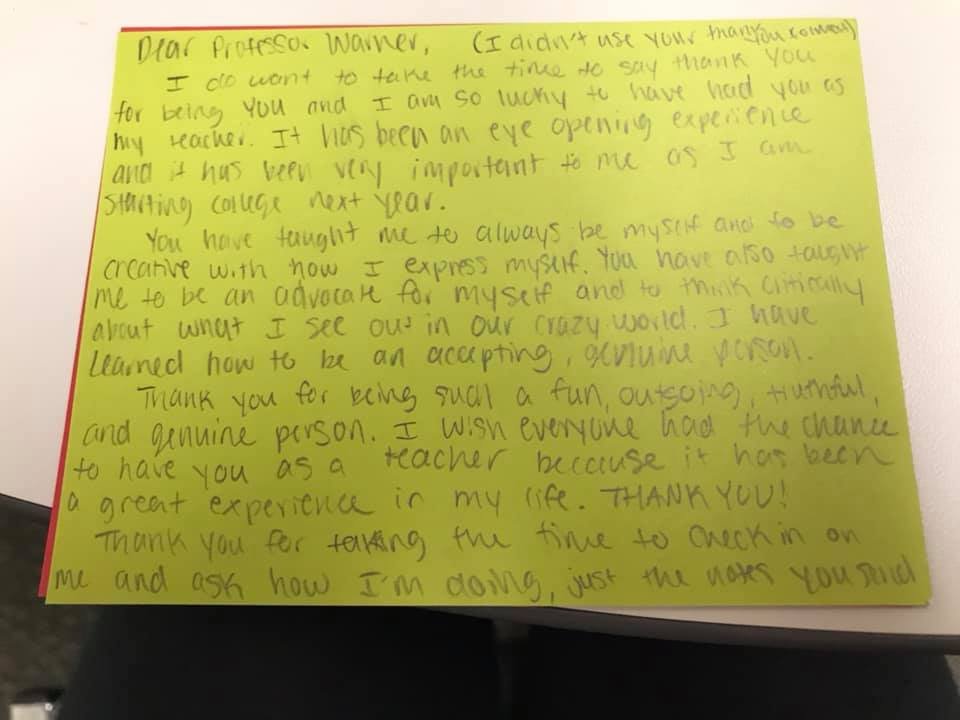 Dear Professor Warner, (I didn't use your thank you format)
I do want to take the time to say thank you
for being YOU and I am so lucky to have had you as
my teacher. It has been an eye opening experience
and it has been very important to me as I am
starting college next year.
You have taught me to always be myself and to be
creative with how I express myself. You have also taught
me to be an advocate for myself and to think critically
about what I see out in our crazy world. I have
learned how to be an accepting, genuine person.
Thank you for being such a fun, outgoing, truthful,
and genuine person. I wish everyone had the chance
to have you as a teacher because it has been
a great experience in my life. THANK YOU!
Thank you for taking the time to check in on
me and ask how I'm doing, just the notes you send